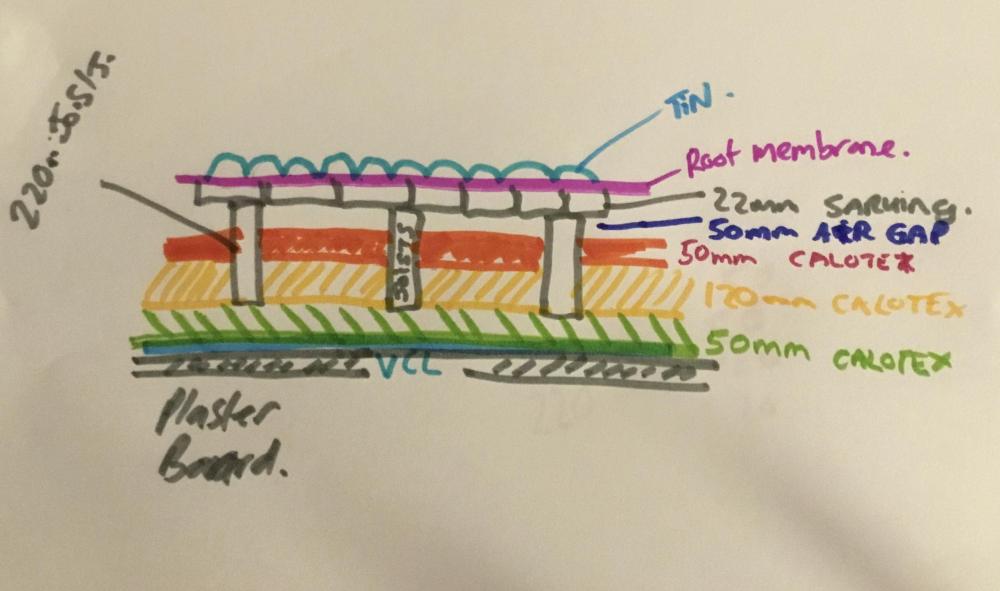 TiN.
Roof membrane.
22mm SARKING.
50mm AIR GAP
50mm CALOTEX
120mm CALOTEX
50mm CALOTEX
220m JOS/T.
JOISTS
VCL
Plaster
Board.